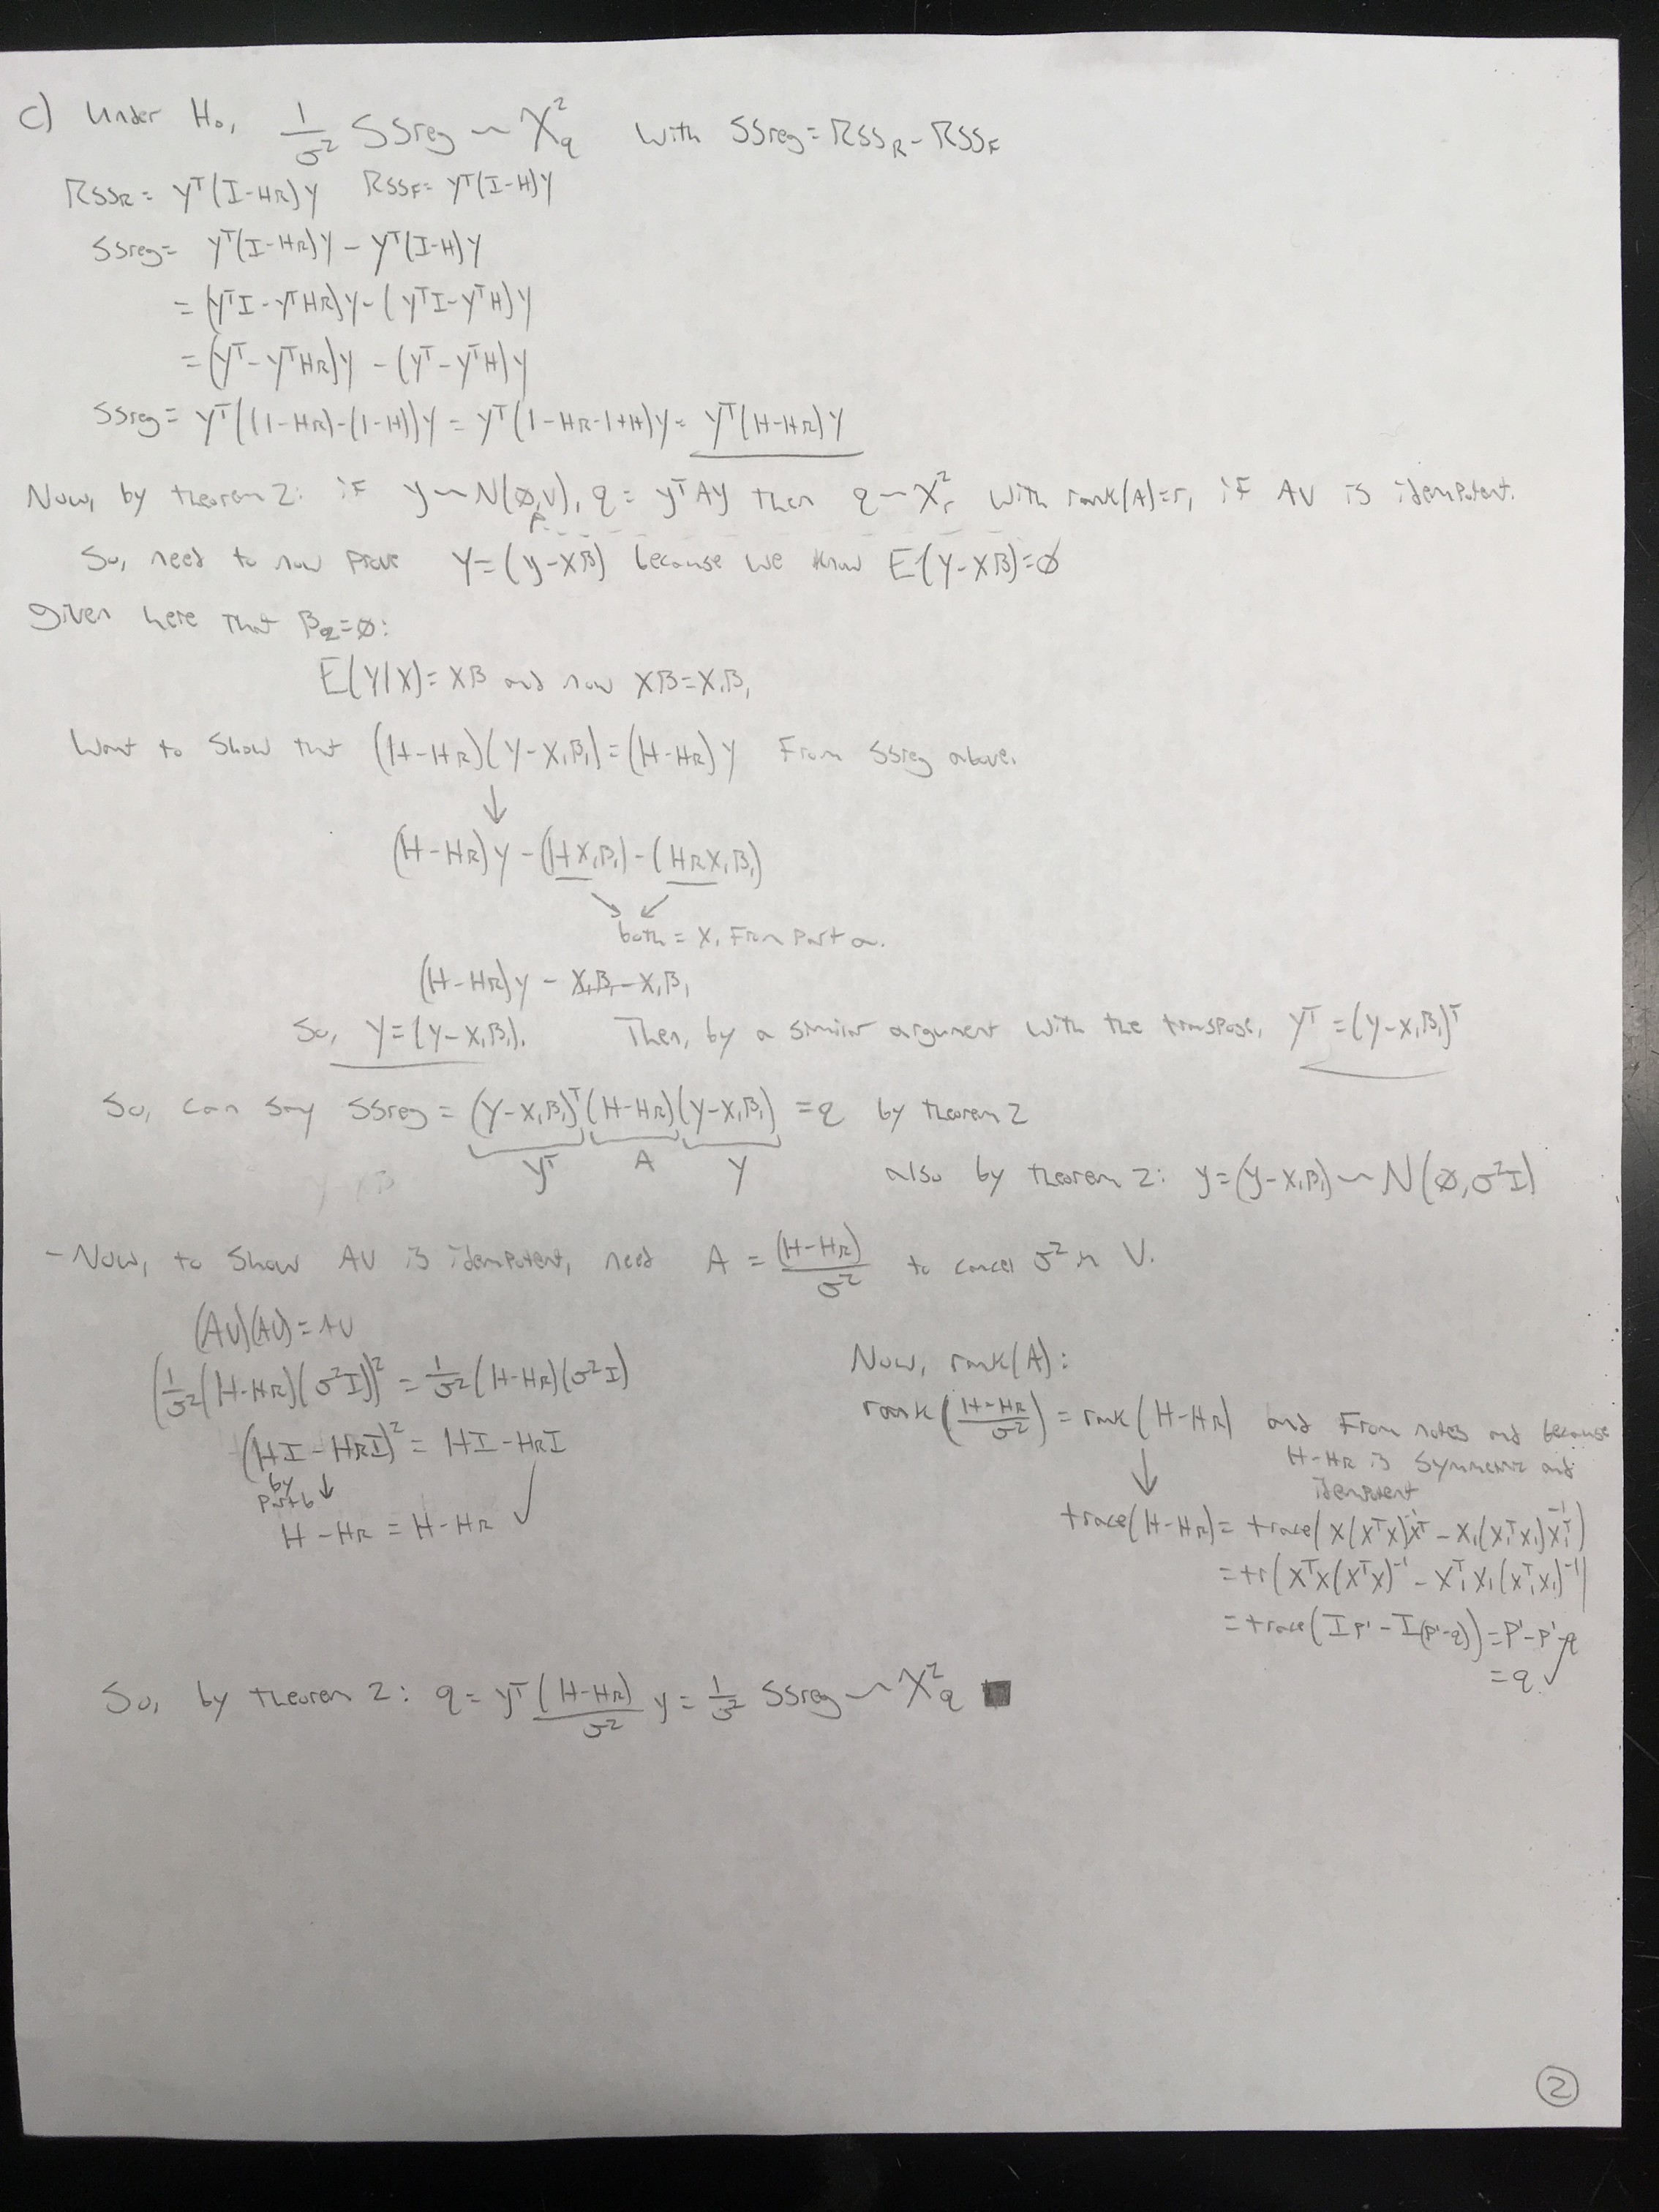 c) Under H₀, 1/σ² SSreg ~ χ²_q with SSreg = RSS_R - RSS_F
RSS_R = Yᵀ(I-H_R)Y RSS_F = Yᵀ(I-H)Y
SSreg = Yᵀ(I-H_R)Y - Yᵀ(I-H)Y
= (YᵀI - YᵀH_R)Y - (YᵀI - YᵀH)Y
= (Yᵀ - YᵀH_R)Y - (Yᵀ - YᵀH)Y
SSreg = Yᵀ((1-H_R)-(1-H))Y = Yᵀ(1-H_R-1+H)Y = Yᵀ(H-H_R)Y
Now, by theorem 2: if y ~ N(∅,V), q = yᵀAy then q ~ χ²_r with rank(A)=r, if AV is idempotent.
So, need to now prove Y = (y-Xβ) because we know E(Y-Xβ)=∅
given here that β₂=∅:
E(Y|X) = Xβ and now Xβ = X₁β₁
Want to show that (H-H_R)(Y-X₁β₁) = (H-H_R)Y From SSreg above.
↓
(H-H_R)Y - (HX₁β₁) - (H_RX₁β₁)
↘ ↙
both = X₁ From part a.
(H-H_R)Y - X₁β₁ - X₁β₁
So, Y = (Y-X₁β₁). Then, by a similar argument with the transpose, Yᵀ = (Y-X₁β₁)ᵀ
So, can say SSreg = (Y-X₁β₁)ᵀ(H-H_R)(Y-X₁β₁) = q by theorem 2
Yᵀ A Y
also by theorem 2: y = (y-X₁β₁) ~ N(∅, σ²I)
- Now, to show AV is idempotent, need A = (H-H_R)/σ² to cancel σ² in V.
(AV)(AV) = AV
(1/σ²(H-H_R)(σ²I))² = 1/σ²(H-H_R)(σ²I)
(HI - H_RI)² = HI - H_RI
by part b ↓
H - H_R = H - H_R ✓
Now, rank(A):
rank((H-H_R)/σ²) = rank(H-H_R) and From notes and because
H-H_R is symmetric and
idempotent
↓
trace(H-H_R) = trace(X(XᵀX)⁻¹Xᵀ - X₁(X₁ᵀX₁)⁻¹X₁ᵀ)
= tr(XᵀX(XᵀX)⁻¹ - X₁ᵀX₁(X₁ᵀX₁)⁻¹)
= trace(I_p' - I_(p'-q)) = p'-p'-q
= q. ✓
So, by theorem 2: q = yᵀ (H-H_R)/σ² y = 1/σ² SSreg ~ χ²_q ■
2